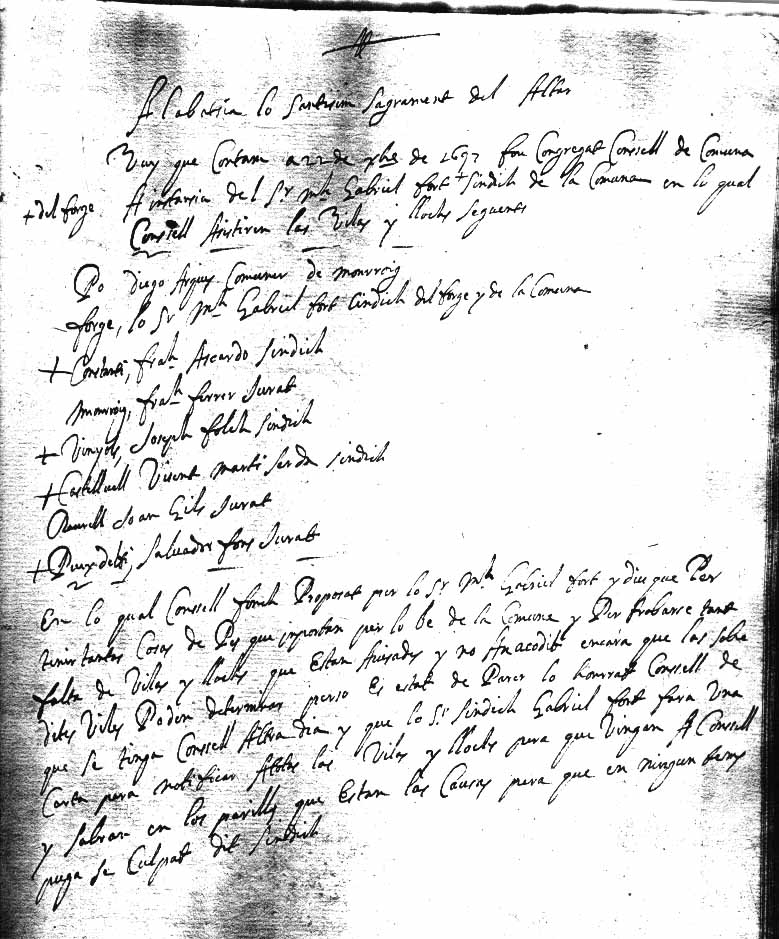 Alabatsia lo Santisim Sagrament del Altar
Vuy que Contam a 22 de xbe de 1697 fou Congregat Consell de Comuna
A instansia del Sr Mh Gabriel fort + Sindich de la Comuna en lo qual
+ del forge
Consell Asistiren las Vilas y llochs seguents
Po Diego Comuner de monrroig
forge, lo Sr Mh Gabriel fort Cindich del forge y de la Comuna
+ Constanti, franh Ascardo Sindich
Monrroig, franh ferrer Jurat
+ Vinyols, Joseph folch Sindich
+ Castellvell Visent marti Serda Sindich
Maurell Joan Gils Jurat
+ Puydelfi, Salvador fons Jurat
En lo qual Consell fonch Proposat per lo Sr Mh Gabriel fort y diu que Per
tenir tantas Cosas de Pes que importan per lo be de la Comuna y Per trobarse tant
falta de Vilas y llochs que Estan Avisades y no An acodit encara que las sobre
dites Viles Poden determinar perso Es estat de Parer lo honrrat Consell de
que se tinga Consell Altra dia y que lo Sr Sindich Gabriel fort fara Una
Carta pera notificar Atotas las Vilas y llochs pera que Vingan A Consell
y sabran en los parills que Estan las Causas pera que en ningun tems
puga se Culpat dit Sindich